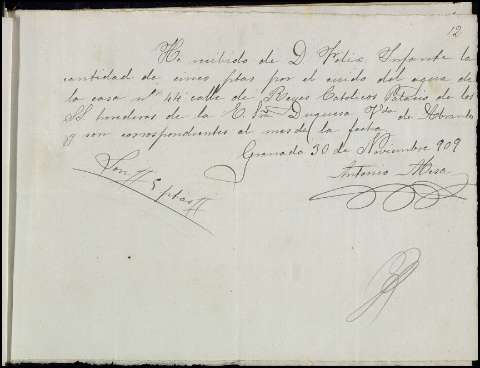 12
He recibido de D Felix Infante la
cantidad de cinco ptas por el cuido del agua de
la casa nº 44 calle de Reyes Catolicos Palacio de los
SS herederos de la E. Sma Duquesa Vda de Abrantes
y son correspondientes al mes de la fecha
Granada 30 de Noviembre 909
Son # 5 ptas #
Antonio Mesa